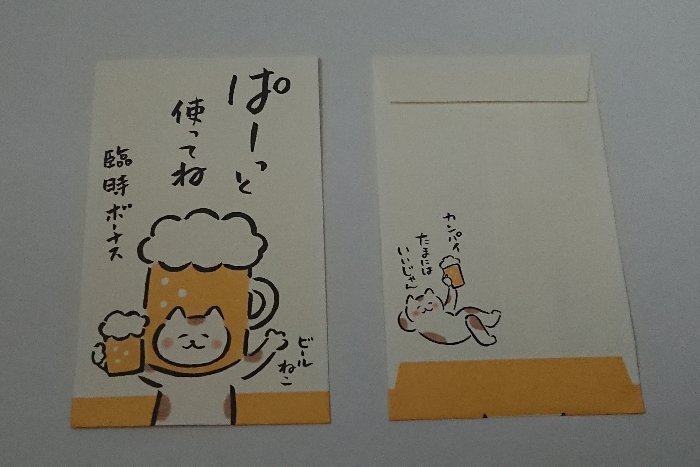 ぱーっと
使ってね
臨時ボーナス
ビール
ねこ
カンパイ
たまには
いいじゃん